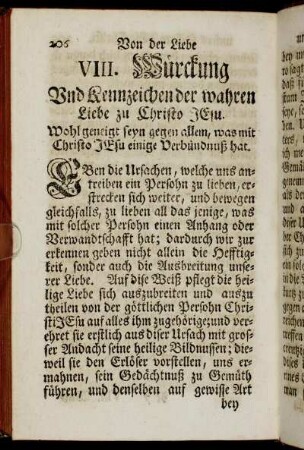 206 Von der Liebe
VIII. Würckung
Vnd Kennzeichen der wahren
Liebe zu Christo JEsu.
Wohl geneigt seyn gegen allem, was mit
Christo JEsu einige Verbündnuß hat.
EBen die Ursachen, welche uns an-
treiben ein Persohn zu lieben, er-
strecken sich weiter, und bewegen
gleichfalls, zu lieben all das jenige, was
mit solcher Persohn einen Anhang oder
Verwandtschafft hat; dardurch wir zur
erkennen geben nicht allein die Hefftig-
keit, sonder auch die Ausbreitung unse-
rer Liebe. Auf dise Weiß pflegt die hei-
lige Liebe sich auszubreiten und auszu
theilen von der göttlichen Persohn Chri-
stiJEsu auf alles ihm zugehörige:und ver-
ehret sie erstlich aus diser Ursach mit gros-
ser Andacht seine heilige Bildnussen; die-
weil sie den Erlöser vorstellen, uns er-
mahnen, sein Gedächtnuß zu Gemüth
führen, und denselben auf gewisse Art
bey